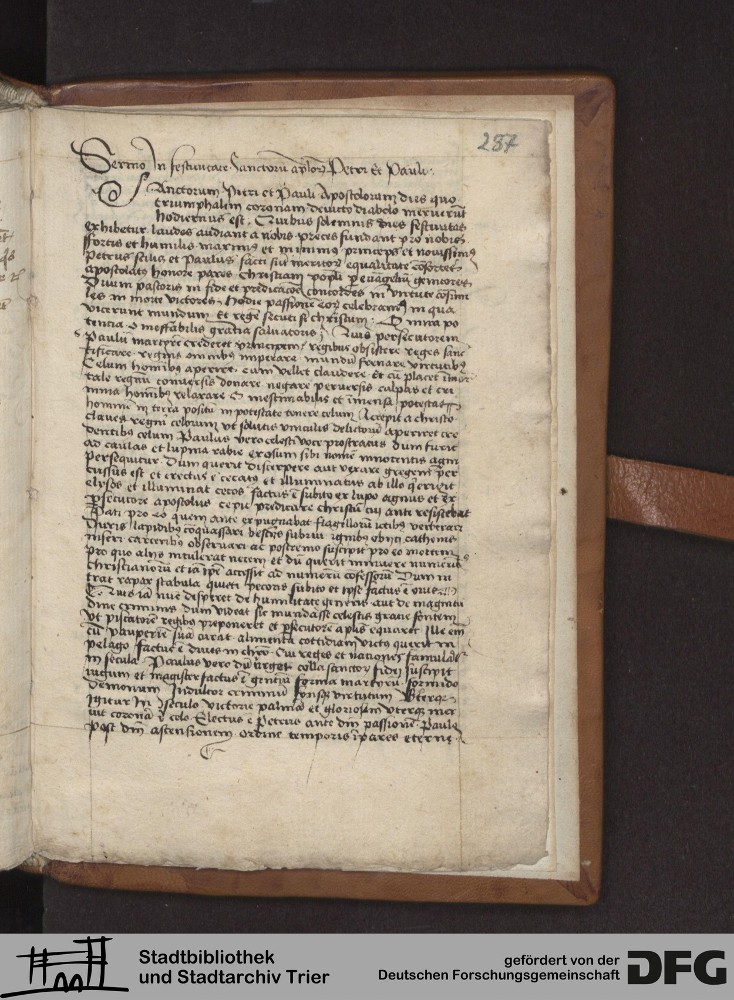 287
Sermo In festiuitate sanctorū apl'orū Petri et Pauli
Sanctorum Petri et Pauli Apostolorum dies quo
triumphalem coronam deuicto diabolo meruerūt
hodiernus est. Quibus solemnis dies festiuitas
exhibetur laudes audiant a nobis preces fundant pro nobis
fortis et humilis maximꝰ et minimꝰ princeps et nouissimꝰ
Petrus scilꝫ et Paulus facti sūt meritorū equalitate cōsortes
apostolatꝰ honore pares christiani popl'i per euāgeliū genitores
Diuini pastoris in fide et predicacōe concordes in virtute cōsimi
les in morte victores. Hodie passionē eorū celebramꝰ in qua
vicerunt mundum et regē secuti sūt christum. O mira po
tentia o ineffabilis gratia saluatoris. Quis persecutorem
Paulū martyrē crederet principem regibus obsistere reges sanc
tificare regnis omnibus imperare mundū frenare virtutibꝰ
Celum hominibꝰ aperire cum vellet claudere et cū placet īmor
tale regnū conuersis donare negare peruersis culpas et cri
mina hominibꝰ relaxare O inestimabilis et īmensa potestas
hominē in terra positū in potestate tenere celum Accepit a christo
claues regni celorum vt solutis vinculis delictorū aperiret cre
dentibus celum Paulus vero celesti voce prostratus dum furit
ad caulas et lupina rabie exosum sibi nomē innocentis agni
persequitur Dum querit discerpere aut vexare gregem per
cussus est et erectus ē cecatꝰ et illuminatus ab illo qui erigit
elysos et illuminat cecos factus ē subito ex lupo agnus et ex
persecutore apostolus cepit predicare christū cui ante resistebat
Pati pro eo quem ante expugnabat flagellorū ictibꝰ verberari
duris lapidibꝰ coquassari bestijs subrui ignibꝰ obijci cathenis
misceri carceribꝰ obseruari ac postremo suscipit pro eo mortem
pro quo alijs intulerat necem et dū querit minuere numerū
christianorū et iā ipse accessit ad numerū cōfessorū Dum in
trat rapax stabula quieti pecoris subito et ipse factus ē ouis
Quis iā nūc desperet de humilitate generis aut de magnitu
dine criminis dum videat sic mundasse celestis gratie fontem
vt piscatorē regibꝰ preponeret et persecutorē aplīs equaret Ille em̄
cū pauperiē suā curat alimenta cottidiani victꝰ querit in
pelago factus ē diues in chr̄o Cui reges et nationes famulātꝰ
in secula Paulus vero dū vrget colla sanctorū fidei suscipit
iugum et magister factus ē gentiū forma martyrū formido
demonum Indultor criminū fons virtutum Vterqꝫ
igitur in seculo victorie palmā et gloriosam vterqꝫ mer
uit coronā ī celo Electus ē Petrus ante dn̄i passionē Paulꝰ
post dn̄i ascensionem ordine temporis īpares eterne
Stadtbibliothek
und Stadtarchiv Trier
gefördert von der
Deutschen Forschungsgemeinschaft
DFG